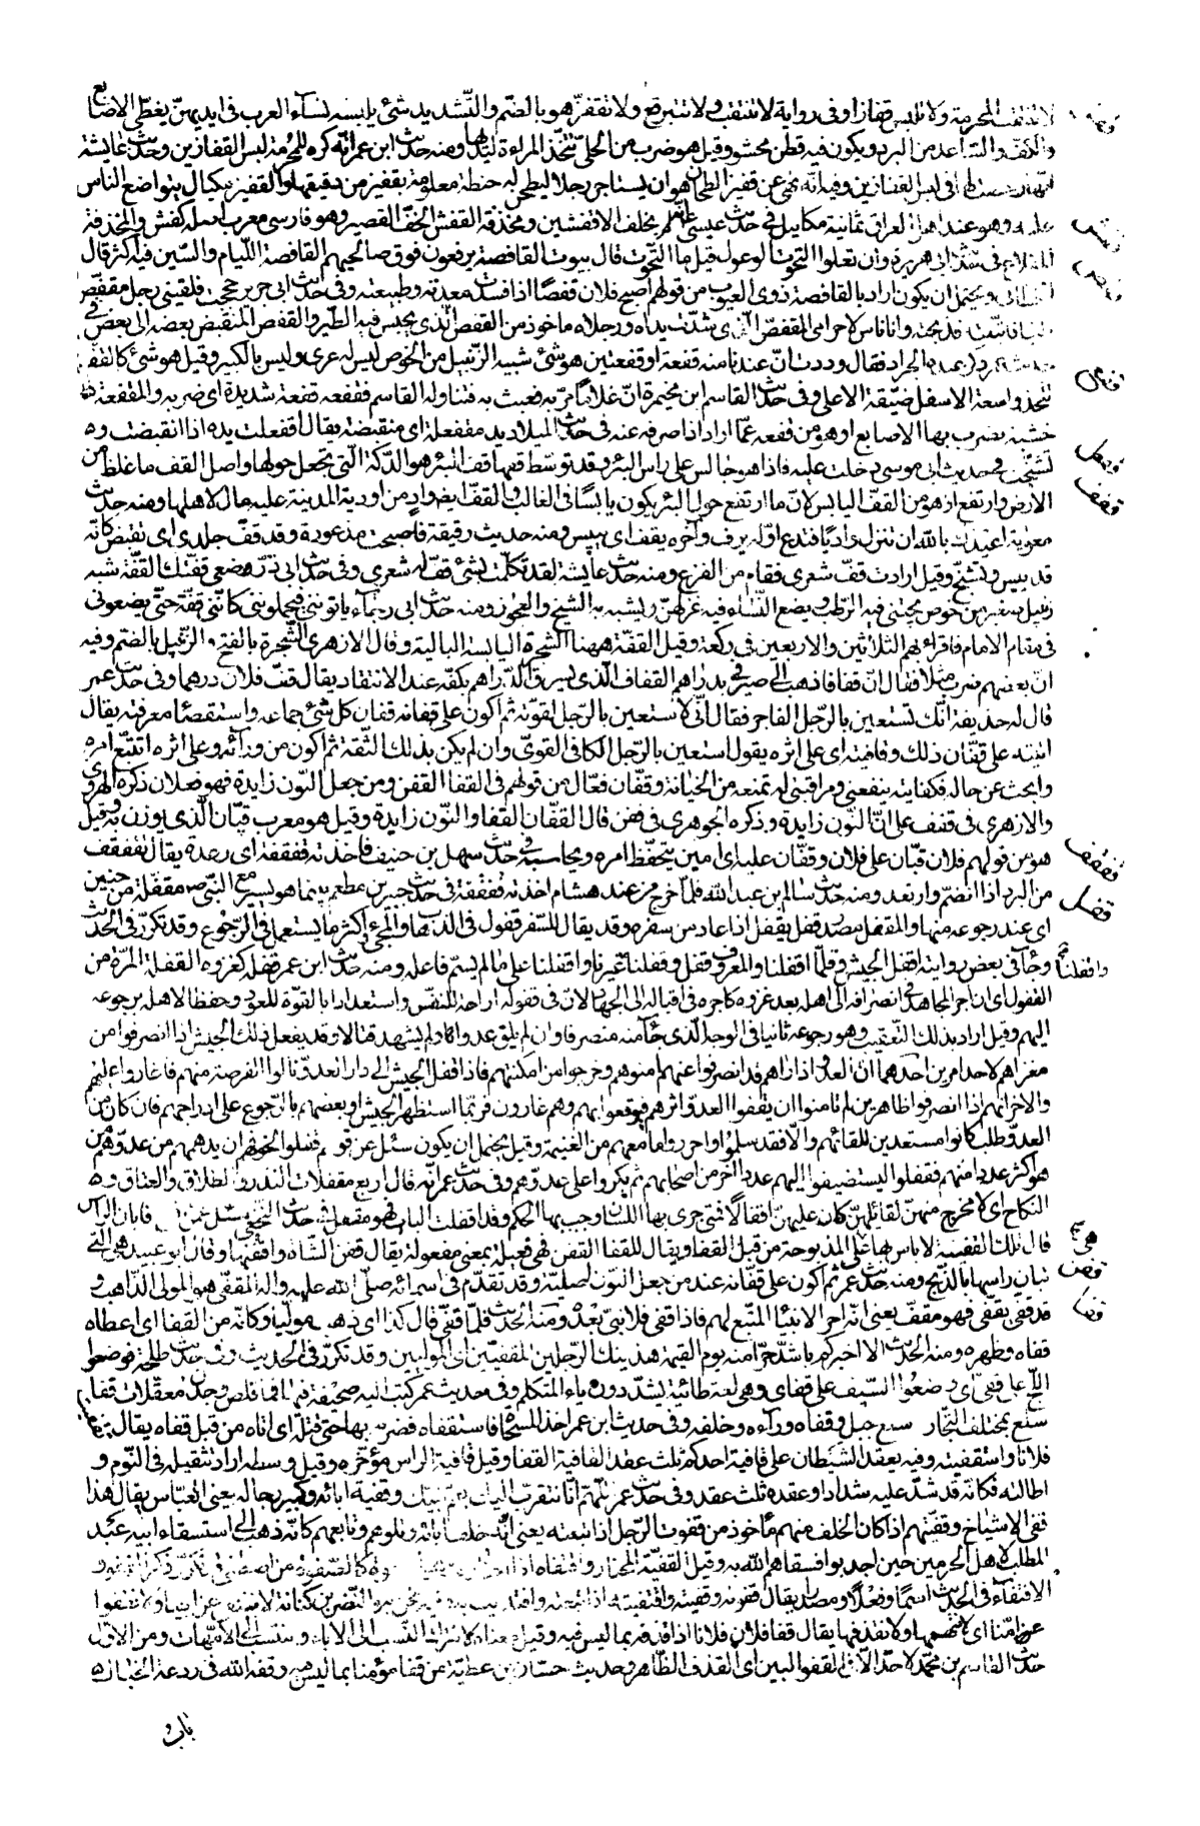 لا تنتقب المحرمة ولا تلبس قفازا وفي رواية لا تنتقب ولا تتبرقع ولا تقفز هو بالضم والتشديد شئ يلبسه نسآء العرب في ايديهن يغطى الاصابع
والكف والساعد من البرد ويكون فيه قطن محشو وقيل هو ضرب من الحلى تتخذ المراءة ليديها ومنه حديث ابن عمر انه كره للمحرمة لبس القفازين وحديث عايشة
في لبس القفازين وفيه انه نهى عن قفيز الطحان هو ان يستاجر رجلا ليطحن له حنطة معلومة بقفيز من دقيقها والقفيز مكيال يتواضع الناس
عليه وهو عند اهل العراق ثمانية مكاييل في حديث عيسى لم يخلف الا قفشين ومخذفة القفش الخف القصير وهو فارسي معرب اصله كفش والمخذفة
المقلاع في حديث ابى هريرة وان تعلوا التحوت الوعول قيل ما التحوت قال بيوت القافصة يرفعون فوق صالحيهم القافصة اللئام والسين فيه اكثر قال
ويحتمل ان يكون اراد بالقافصة ذوى العيوب من قولهم اصبح فلان قفصا اذا فسدت معدته وطبيعته وفي حديث ابى جرير حججت فلقينى رجل مقفص
المقفص الذى شدت يداه ورجلاه ماخوذ من القفص الذى يحبس فيه الطير والقفص المنقبض بعضه الى بعض
الجراد فقال وددت ان عندنا منه قفعة او قفعتين هو شئ شبيه الزنبيل من الخوص ليس له عرى وليس بالكبير وقيل هو شئ كالقفة
تتخذ واسعة الاسفل ضيقة الاعلى وفي حديث القاسم ابن مخيمرة ان غلاما مر به فعبث به فتناوله القاسم فقفعه قفعة شديدة اى ضربه والمقفعة
خشبة يضرب بها الاصابع او هو من قفعه عما اراد اذا صرفه عنه في حديث الميلاد يد مقفعلة اى منقبضة يقال اقفعلت يده اذا انقبضت و
تشنجت في حديث ابى موسى دخلت عليه فاذا هو جالس على راس البئر وقد توسط قفها قف البئر هو الدكة التى تجعل حولها واصل القف ما غلظ من
الارض وارتفع او هو من القف اليابس لان ما ارتفع حول البئر يكون يابسا في الغالب والقف ايضا واد من اودية المدينة عليه مال لاهلها ومنه حديث
معوية اعيذك بالله ان تنزل واديا فتدع اوله يرف وآخره يقف اى ييبس ومنه حديث رقيقة فاصبحت مذعورة وقد قف جلدى اى تقبض كانه
قد يبس وتشنج وقيل ارادت قف شعرى فقام من الفزع ومنه حديث عايشة لقد تكلمت بشئ قف له شعرى وفي حديث ابى ذر وضعى قفتك القفة شبه
زنبيل صغير من خوص يجتنى فيه الرطب ويضع النساء فيه غزلهن ويشبه به الشيخ والعجوز ومنه حديث ابى رجاء ياتوننى فيحملوننى كاننى قفة حتى يضعونى
في مقام الامام فاقراء بهم الثلاثين والاربعين في ركعة وقيل القفة ههنا الشجرة اليابسة البالية وقال الازهرى الشجرة بالفتح والزنبيل بالضم وفيه
ان بعضهم ضرب مثلا فقال ان قفافا ذهب الى صيرفى بدراهم القفاف الذى يسرق الدراهم بكفه عند الانتقاد يقال قف فلان درهما وفي حديث عمر
قال له حذيفة انك تستعين بالرجل الفاجر فقال انى لاستعين بالرجل لقوته ثم اكون على قفانه قفان كل شئ جماعه واستقصاء معرفته يقال
اتيته على قفان ذلك وقافيته اى على اثره يقول استعين بالرجل الكافى القوى وان لم يكن بذلك الثقة ثم اكون من ورآئه وعلى اثره اتتبع امره
وابحث عن حاله فكفايته ينفعنى ومراقبتى له تمنعه من الخيانة وقفان فعال من قولهم في القفا القفن ومن جعل النون زايدة فهو فعلان ذكره الهروى
والازهرى في قفف على ان النون زايدة وذكره الجوهرى في قفن قال القفان القفا والنون زايدة وقيل هو معرب قبان الذى يوزن به وقيل
هو من قولهم فلان قبان على فلان وقفان عليه اى امين يتحفظ امره ويحاسبه في حديث سهل بن حنيف فاخذته قفقفة اى رعدة يقال تقفقف
من البرد اذا انضم وارتعد ومنه حديث سالم ابن عبد الله فلما خرج من عند هشام اخذته قفقفة في حديث جبير بن مطعم بينما هو يسير مع النبي ص مقفلة من حنين
اى عند رجوعه منها والمقفل مصدر قفل يقفل اذا عاد من سفره وقد يقال للسفر قفول في الذهاب والمجئ واكثر ما يستعمل في الرجوع وقد تكرر في الحديث
وجآء في بعض رواياته اقفل الجيش وقلما اقفلنا والمعروف قفل وقفلنا واقفلنا غيرنا واقفلنا على ما لم يسم فاعله ومنه حديث ابن عمر قفلة كغزوه القفلة المرة من
القفول اى ان اجر المجاهد في انصرافه الى اهله بعد غزوه كاجره في اقباله الى الجهاد لان في قفوله اراحة للنفس واستعدادا بالقوة للعود وحفظا لاهله برجوعه
اليهم وقيل اراد بذلك التعقيب وهو رجوعه ثانيا في الوجه الذى جآء منه منصرفا وان لم يلق عدوا ولم يشهد قتالا وقد يفعل ذلك الجيش اذا انصرفوا من
مغزاهم لاحد امرين احدهما ان العدو اذا راهم قد انصرفوا عنهم امنوهم وخرجوا من امكنتهم فاذا قفل الجيش الى دار العدو نالوا الفرصة منهم فاغاروا عليهم
والاخر انهم اذا انصرفوا ظاهرين لم يامنوا ان يقفوا العدو اثرهم فيوقعوا بهم وهم غارون فربما استظهر الجيش او بعضهم بالرجوع على ادراجهم فان كان من
العدو طلب كانوا مستعدين للقائهم والا فقد سلموا واحرزوا ما معهم من الغنيمة وقيل يحتمل ان يكون سئل عن قوم قفلوا لخوفهم ان يدهمهم من عدوهم من
هو اكثر عددا منهم فقفلوا ليستضيفوا اليهم عددا اخر من اصحابهم ثم يكروا على عدوهم وفي حديث عمر انه قال اربع مقفلات النذر والطلاق والعتاق و
النكاح اى لا مخرج منهن لقائلهن كان عليهن اقفالا فمتى جرى بها اللسان وجب بها الحكم وقد اقفلت الباب فهو مقفل في حديث النخعى سئل عن فابان الراس
قال تلك القفينة لا باس بها هى المذبوحة من قبل القفا ويقال للقفا القفن فهى فعيلة بمعنى مفعولة يقال قفن الشاة واقتفنها وقال ابو عبيد هى التى
يبان راسها بالذبح ومنه حديث عمر ثم اكون على قفانه عند من جعل النون اصلية وقد تقدم في اسمائه صلى الله عليه واله المقفى هو المولى الذاهب و
قد قفى يقفى فهو مقف يعنى انه اخر الانبياء المتبع لهم فاذا قفى فلا نبى بعده ومنه الحديث فلما قفى قال كذا اى ذهب موليا وكانه من القفا اى اعطاه
قفاه وظهره ومنه الحديث الا اخبركم باشد حرا منه يوم القيمة هذينك الرجلين المقفيين اى الموليين وقد تكرر في الحديث وفي حديث طلحة فوضعوا
اللج على قفى اى وضعوا السيف على قفاى وهى لغة طائية يشددون ياء المتكلم وفي حديث عمر كتب اليه صحيفة فيها فما قلص وجدن معقلات قفا
سلع بمختلف التجار سلع جبل وقفاه ورآءه وخلفه وفي حديث ابن عمر اخذ المسحاة فاستقفاه فضربه بها حتى قتله اى اتاه من قبل قفاه يقال تقفيت
فلانا واستقفيته وفيه يعقد الشيطان على قافية احدكم ثلث عقد القافية القفا وقيل قافية الراس مؤخره وقيل وسطه اراد تثقيله في النوم و
اطالته فكانه قد شد عليه شدادا وعقده ثلث عقد وفي حديث عمر اللهم انا نتقرب اليك بعم نبيك وقفية ابائه وكبر رجاله يعنى العباس يقال هذا
قفى الاشياخ وقفيتهم اذا كان الخلف منهم ماخوذ من قفوت الرجل اذا تبعته يعنى انه خلف ابائه وتلوهم وتابعهم كانه ذهب الى استسقاء ابيه عبد
المطلب لاهل الحرمين حين اجدبوا فسقاهم الله به وقيل القفية المختار واقتفاه اذا اختاره كالصفوة من اصطفى وقد تكرر ذكر القفو و
الاقتفاء في الحديث اسما وفعلا ومصدرا يقال قفوته وقفيته واقتفيته اذا تبعته واقتديت به وفيه نحن بنو النضر بن كنانة لا ننتفى عن ابينا ولا نقفوا
امنا اى لا نتهمها ولا نقذفها يقال قفا فلان فلانا اذا قذفه بما ليس فيه وقيل معناه لا نترك النسب الى الاباء وننتسب الى الامهات ومن الاول
حديث القاسم بن محمد لا حد الا في القفو البين اى القذف الظاهر وحديث حسان بن عطية من قفا مؤمنا بما ليس فيه وقفه الله في ردغة الخبال
قفش
قفص
قفع
قفعل
قفف
قفقف
قفل
واقفلنا
قفن
قفا
باب